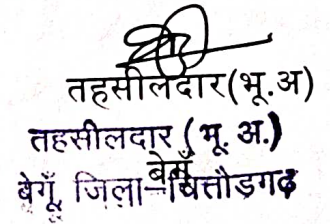 तहसीलदार(भू.अ)
तहसीलदार (भू. अ.)
बेगूँ
बेगूँ, जिला-चित्तौडगढ़